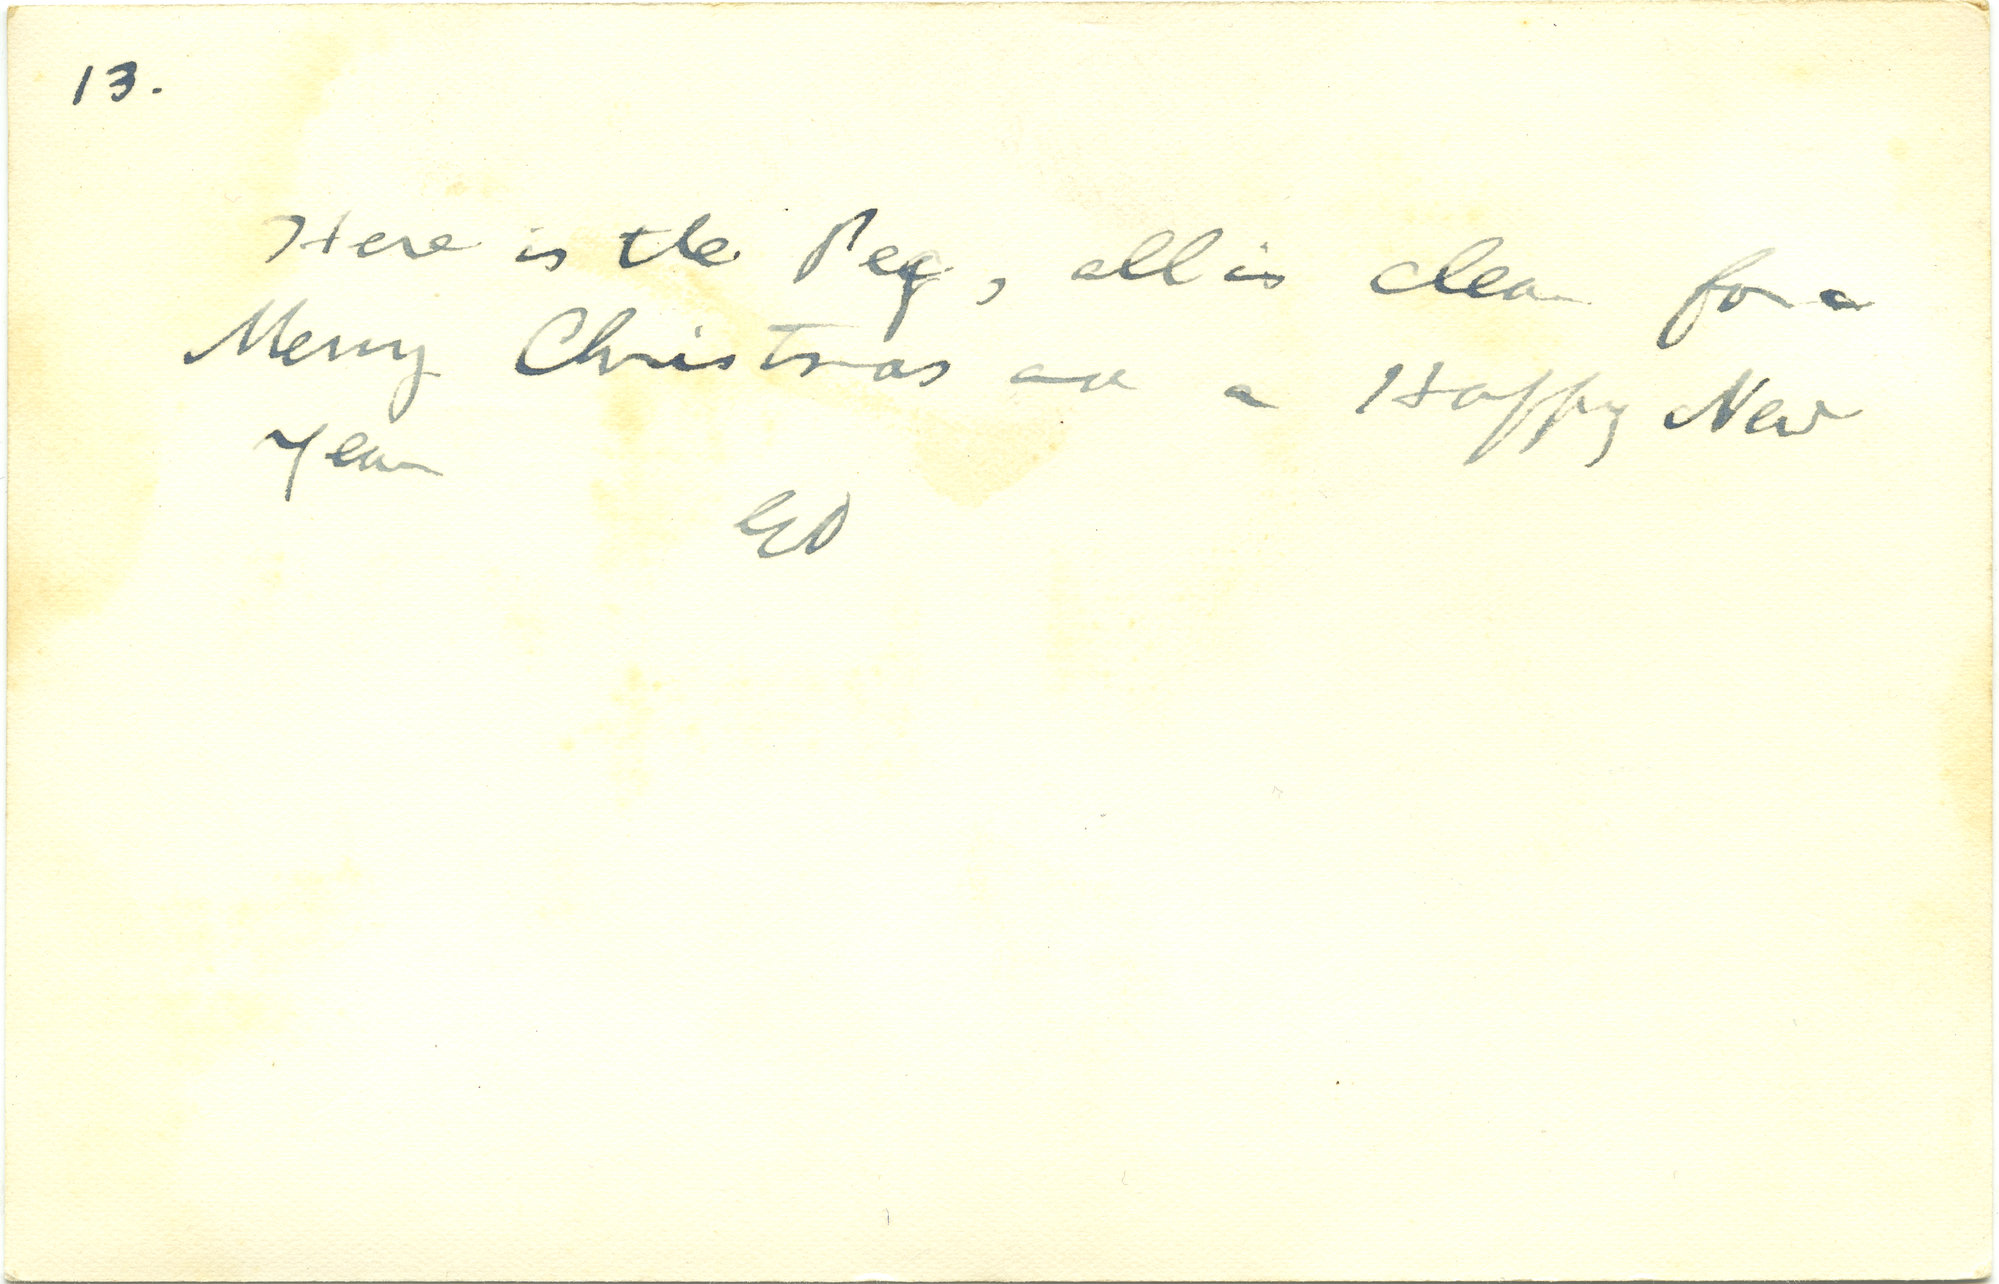 13.
Here is the Peg, all is clear for a
Merry Christmas and a Happy New
Year
ED